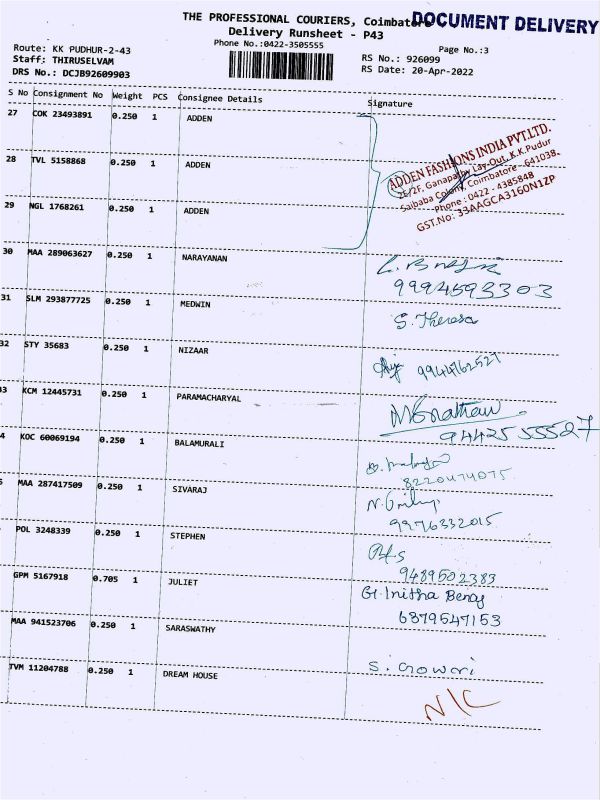 THE PROFESSIONAL COURIERS, Coimbatore
DOCUMENT DELIVERY
Delivery Runsheet - P43
Phone No.:0422-3505555
Page No.:3
Route: KK PUDHUR-2-43
Staff: THIRUSELVAM
DRS No.: DCJB92609903
RS No.: 926099
RS Date: 20-Apr-2022
S No Consignment No Weight PCS Consignee Details Signature
27 COK 23493891 0.250 1 ADDEN
28 TVL 5158868 0.250 1 ADDEN
29 NGL 1768261 0.250 1 ADDEN
ADDEN FASHIONS INDIA PVT.LTD.
2E/2F, Ganapathy Lay-Out, K.K.Pudur
Saibaba Colony, Coimbatore - 641038.
Phone : 0422 - 4385848
GST.No: 33AAGCA3160N1ZP
30 MAA 289063627 0.250 1 NARAYANAN
9994593303
31 SLM 293877725 0.250 1 MEDWIN S. Theresa
32 STY 35683 0.250 1 NIZAAR 9944762527
33 KCM 12445731 0.250 1 PARAMACHARYAL
9442555527
4 KOC 60069194 0.250 1 BALAMURALI
8220474075
MAA 287417509 0.250 1 SIVARAJ
9976332015
POL 3248339 0.250 1 STEPHEN
9489502383
GPM 5167918 0.705 1 JULIET G. Initha Benaj
6879547153
MAA 941523706 0.250 1 SARASWATHY S. Gowri
TVM 11204788 0.250 1 DREAM HOUSE N/C